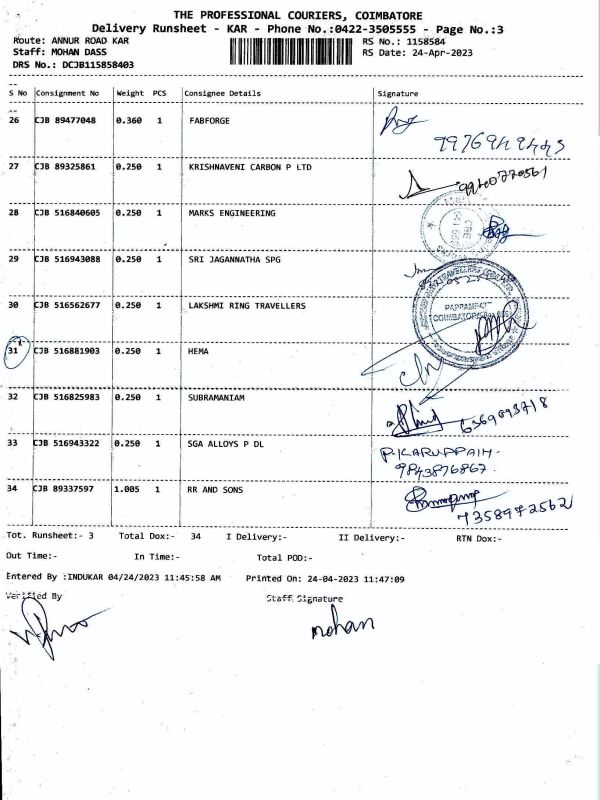 THE PROFESSIONAL COURIERS, COIMBATORE
Delivery Runsheet - KAR - Phone No.:0422-3505555 - Page No.:3
Route: ANNUR ROAD KAR RS No.: 1158584
Staff: MOHAN DASS RS Date: 24-Apr-2023
DRS No.: DCJB115858403
S No Consignment No Weight PCS Consignee Details Signature
26 CJB 89477048 0.360 1 FABFORGE
27 CJB 89325861 0.250 1 KRISHNAVENI CARBON P LTD
28 CJB 516840605 0.250 1 MARKS ENGINEERING
29 CJB 516943088 0.250 1 SRI JAGANNATHA SPG
30 CJB 516562677 0.250 1 LAKSHMI RING TRAVELLERS
PAPPAMPATTI
31 CJB 516881903 0.250 1 HEMA
32 CJB 516825983 0.250 1 SUBRAMANIAM
33 CJB 516943322 0.250 1 SGA ALLOYS P DL P.KARUPPAIH.
9843876867.
34 CJB 89337597 1.005 1 RR AND SONS
7358972562
Tot. Runsheet:- 3 Total Dox:- 34 I Delivery:- II Delivery:- RTN Dox:-
Out Time:- In Time:- Total POD:-
Entered By :INDUKAR 04/24/2023 11:45:58 AM Printed On: 24-04-2023 11:47:09
Verified By Staff Signature
mohan